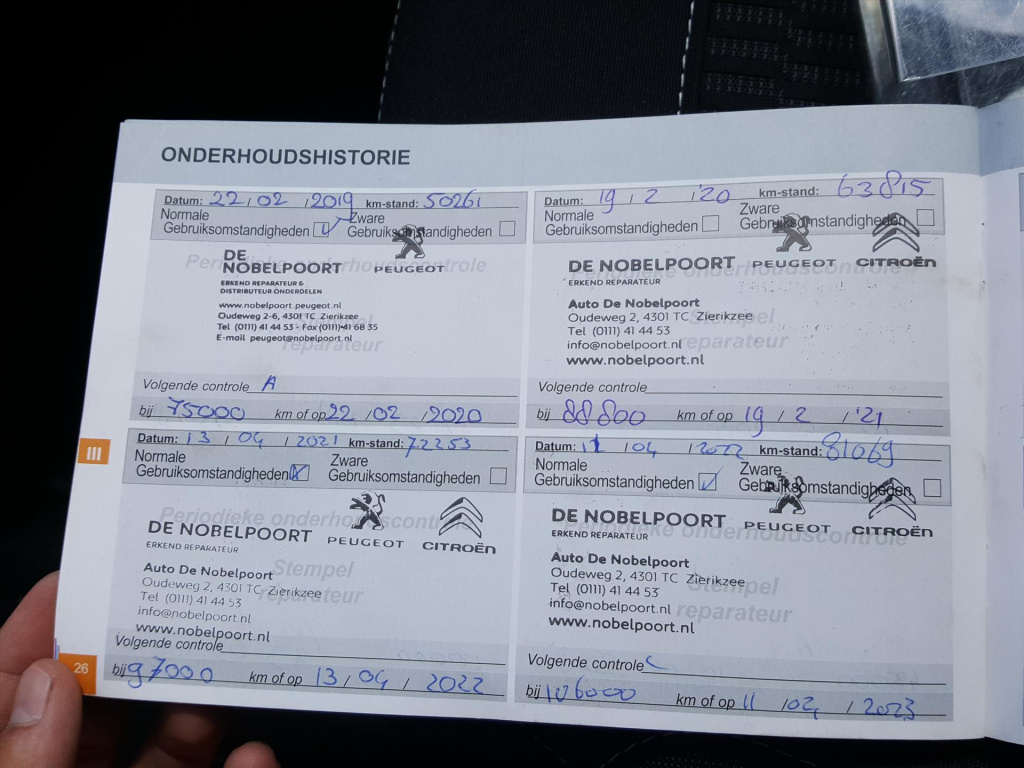 ONDERHOUDSHISTORIE
Datum: 22 / 02 / 2019 km-stand: 50261
Normale Zware
Gebruiksomstandigheden Gebruiksomstandigheden
Periodieke onderhoudscontrole
DE
NOBELPOORT PEUGEOT
ERKEND REPARATEUR &
DISTRIBUTEUR ONDERDELEN
www.nobelpoort.peugeot.nl
Oudeweg 2-6, 4301 TC Zierikzee
Stempel
Tel (0111) 41 44 53 - Fax (0111) 41 68 35
E-mail peugeot@nobelpoort.nl
reparateur
Volgende controle A
bij 75000 km of op 22 / 02 / 2020
Datum: 19 / 2 / '20 km-stand: 63815
Normale Zware
Gebruiksomstandigheden Gebruiksomstandigheden
Periodieke onderhoudscontrole
DE NOBELPOORT PEUGEOT CITROËN
ERKEND REPARATEUR
Auto De Nobelpoort
Oudeweg 2, 4301 TC Zierikzee
Stempel
Tel (0111) 41 44 53
info@nobelpoort.nl
reparateur
www.nobelpoort.nl
Volgende controle
bij 88800 km of op 19 / 2 / '21
Datum: 13 / 04 / 2021 km-stand: 72253
Normale Zware
Gebruiksomstandigheden Gebruiksomstandigheden
Periodieke onderhoudscontrole
DE NOBELPOORT PEUGEOT CITROËN
ERKEND REPARATEUR
Auto De Nobelpoort
Stempel
Oudeweg 2, 4301 TC Zierikzee
Tel (0111) 41 44 53
reparateur
info@nobelpoort.nl
www.nobelpoort.nl
Volgende controle
bij 97000 km of op 13 / 04 / 2022
Datum: 11 / 04 / 2022 km-stand: 81069
Normale Zware
Gebruiksomstandigheden Gebruiksomstandigheden
Periodieke onderhoudscontrole
DE NOBELPOORT PEUGEOT CITROËN
ERKEND REPARATEUR
Auto De Nobelpoort
Oudeweg 2, 4301 TC Zierikzee
Stempel
Tel (0111) 41 44 53
info@nobelpoort.nl
reparateur
www.nobelpoort.nl
Volgende controle C
bij 106000 km of op 11 / 04 / 2023
III
26